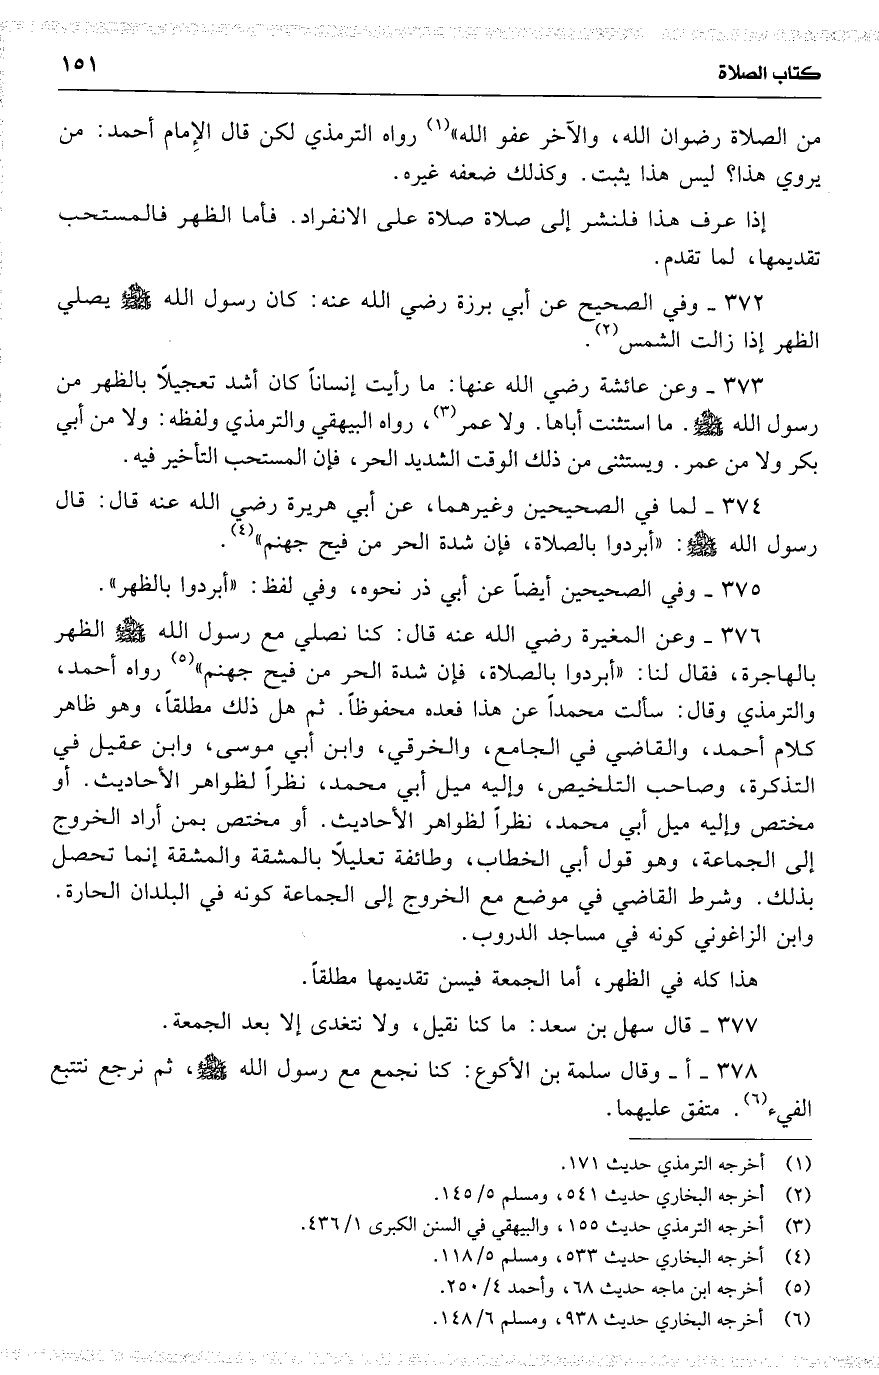 كتاب الصلاة ١٥١
من الصلاة رضوان الله، والآخر عفو الله»(١) رواه الترمذي لكن قال الإمام أحمد: من
يروي هذا؟ ليس هذا يثبت. وكذلك ضعفه غيره.
إذا عرف هذا فلنشر إلى صلاة صلاة على الانفراد. فأما الظهر فالمستحب
تقديمها، لما تقدم.
٣٧٢ ـ وفي الصحيح عن أبي برزة رضي الله عنه: كان رسول الله ﷺ يصلي
الظهر إذا زالت الشمس(٢).
٣٧٣ ـ وعن عائشة رضي الله عنها: ما رأيت إنساناً كان أشد تعجيلاً بالظهر من
رسول الله ﷺ. ما استثنت أباها. ولا عمر(٣)، رواه البيهقي والترمذي ولفظه: ولا من أبي
بكر ولا من عمر. ويستثنى من ذلك الوقت الشديد الحر، فإن المستحب التأخير فيه.
٣٧٤ ـ لما في الصحيحين وغيرهما، عن أبي هريرة رضي الله عنه قال: قال
رسول الله ﷺ: «أبردوا بالصلاة، فإن شدة الحر من فيح جهنم»(٤).
٣٧٥ ـ وفي الصحيحين أيضاً عن أبي ذر نحوه، وفي لفظ: «أبردوا بالظهر».
٣٧٦ ـ وعن المغيرة رضي الله عنه قال: كنا نصلي مع رسول الله ﷺ الظهر
بالهاجرة، فقال لنا: «أبردوا بالصلاة، فإن شدة الحر من فيح جهنم»(٥) رواه أحمد،
والترمذي وقال: سألت محمداً عن هذا فعده محفوظاً. ثم هل ذلك مطلقاً، وهو ظاهر
كلام أحمد، والقاضي في الجامع، والخرقي، وابن أبي موسى، وابن عقيل في
التذكرة، وصاحب التلخيص، وإليه ميل أبي محمد، نظراً لظواهر الأحاديث. أو
مختص وإليه ميل أبي محمد، نظراً لظواهر الأحاديث. أو مختص بمن أراد الخروج
إلى الجماعة، وهو قول أبي الخطاب، وطائفة تعليلاً بالمشقة والمشقة إنما تحصل
بذلك. وشرط القاضي في موضع مع الخروج إلى الجماعة كونه في البلدان الحارة.
وابن الزاغوني كونه في مساجد الدروب.
هذا كله في الظهر، أما الجمعة فيسن تقديمها مطلقاً.
٣٧٧ ـ قال سهل بن سعد: ما كنا نقيل، ولا نتغدى إلا بعد الجمعة.
٣٧٨ ـ أ ـ وقال سلمة بن الأكوع: كنا نجمع مع رسول الله ﷺ، ثم نرجع نتتبع
الفيء(٦). متفق عليهما.
(١) أخرجه الترمذي حديث ١٧١.
(٢) أخرجه البخاري حديث ٥٤١، ومسلم ١٤٥/٥.
(٣) أخرجه الترمذي حديث ١٥٥، والبيهقي في السنن الكبرى ٤٣٦/١.
(٤) أخرجه البخاري حديث ٥٣٣، ومسلم ١١٨/٥.
(٥) أخرجه ابن ماجه حديث ٦٨، وأحمد ٢٥٠/٤.
(٦) أخرجه البخاري حديث ٩٣٨، ومسلم ١٤٨/٦.